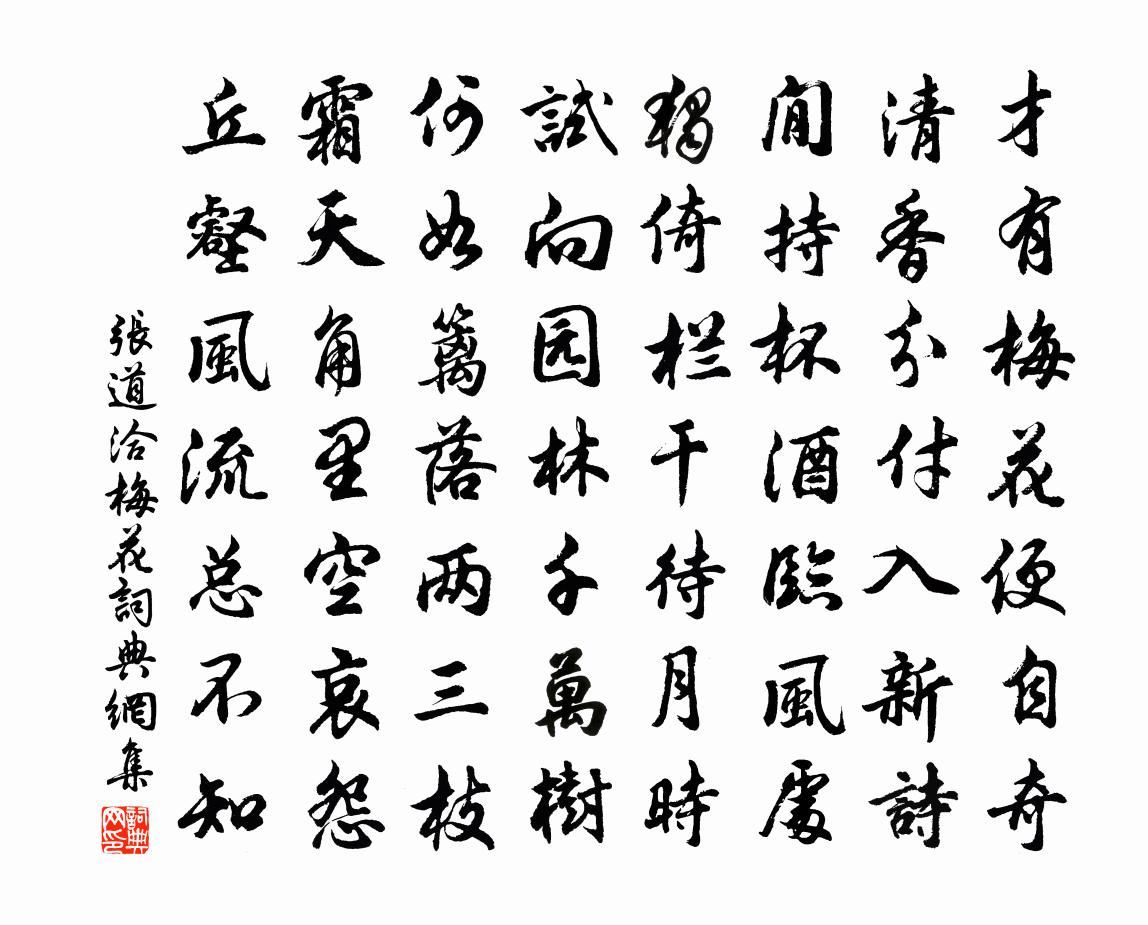 才有梅花便自奇
清香分付入新詩
閒持杯酒臨風處
獨倚栏干待月時
試向园林千萬樹
何如篱落两三枝
霜天角里空哀怨
丘壑風流总不知
張道洽梅花詞典網集
詞典网印